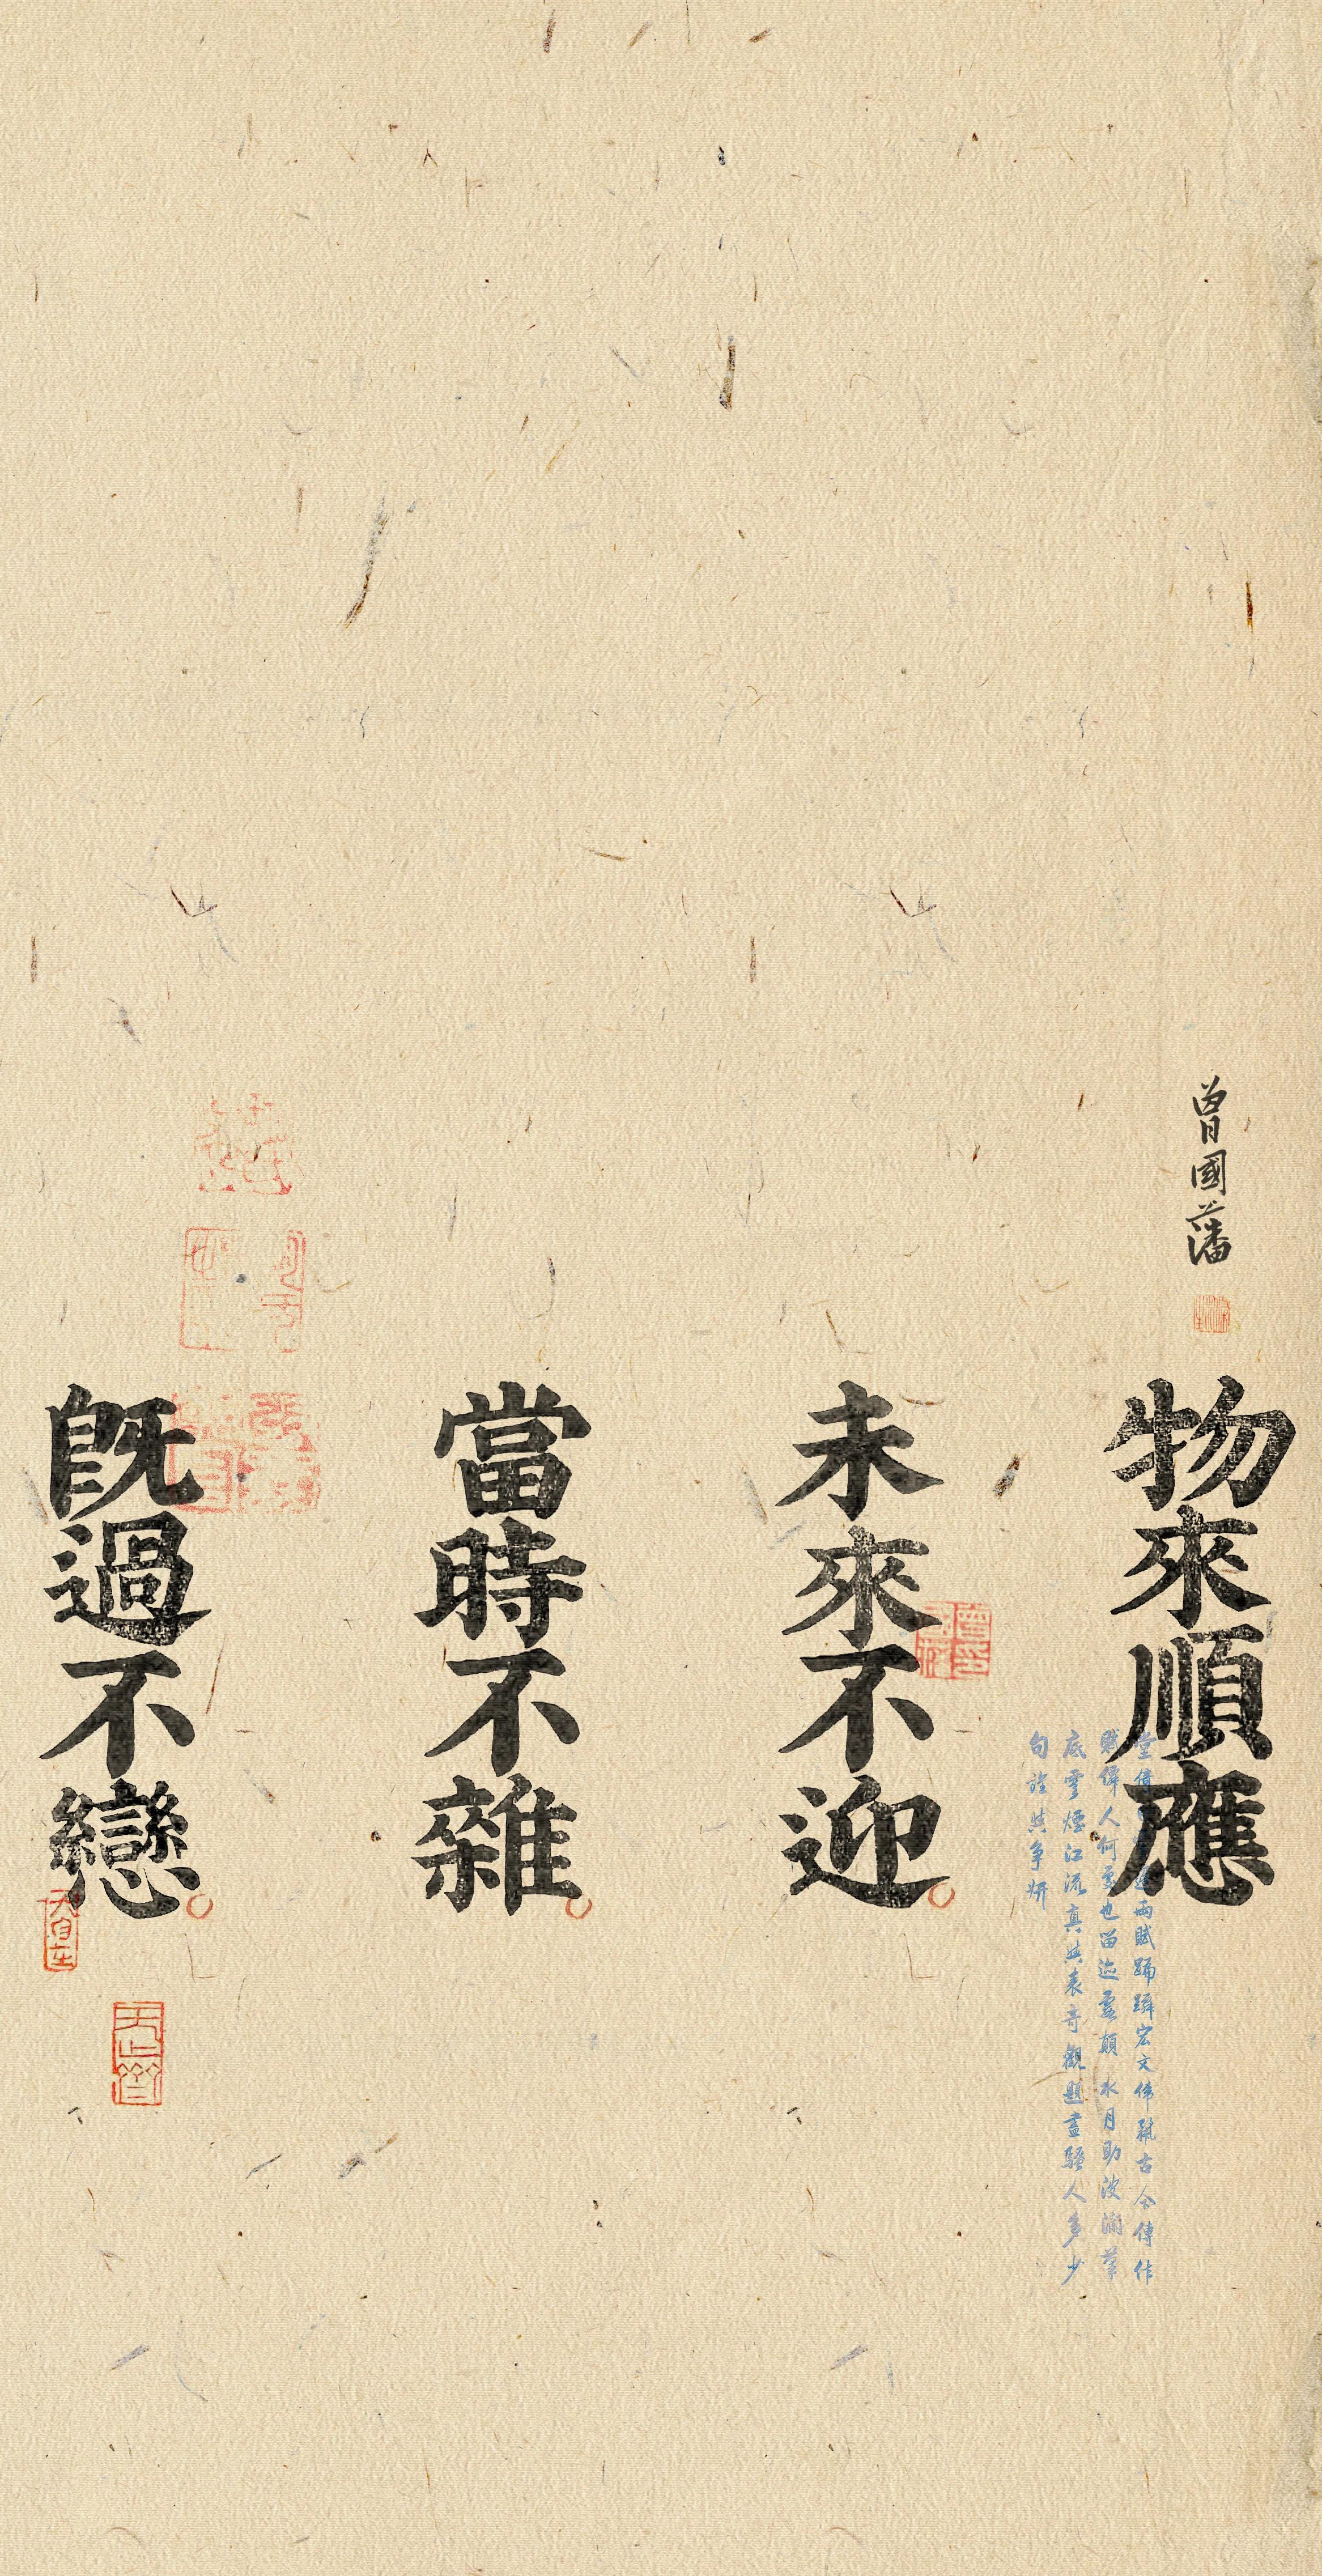 曾國藩
物來順應
未來不迎。
當時不雜。
既過不戀。
兩賦踊躋宏文偉㼐古今傳作
賦儔人何處也留迹靈顛水月助波瀾筆
底雲煙江流真與表奇觀題畫騷人多少
句詮與爭妍